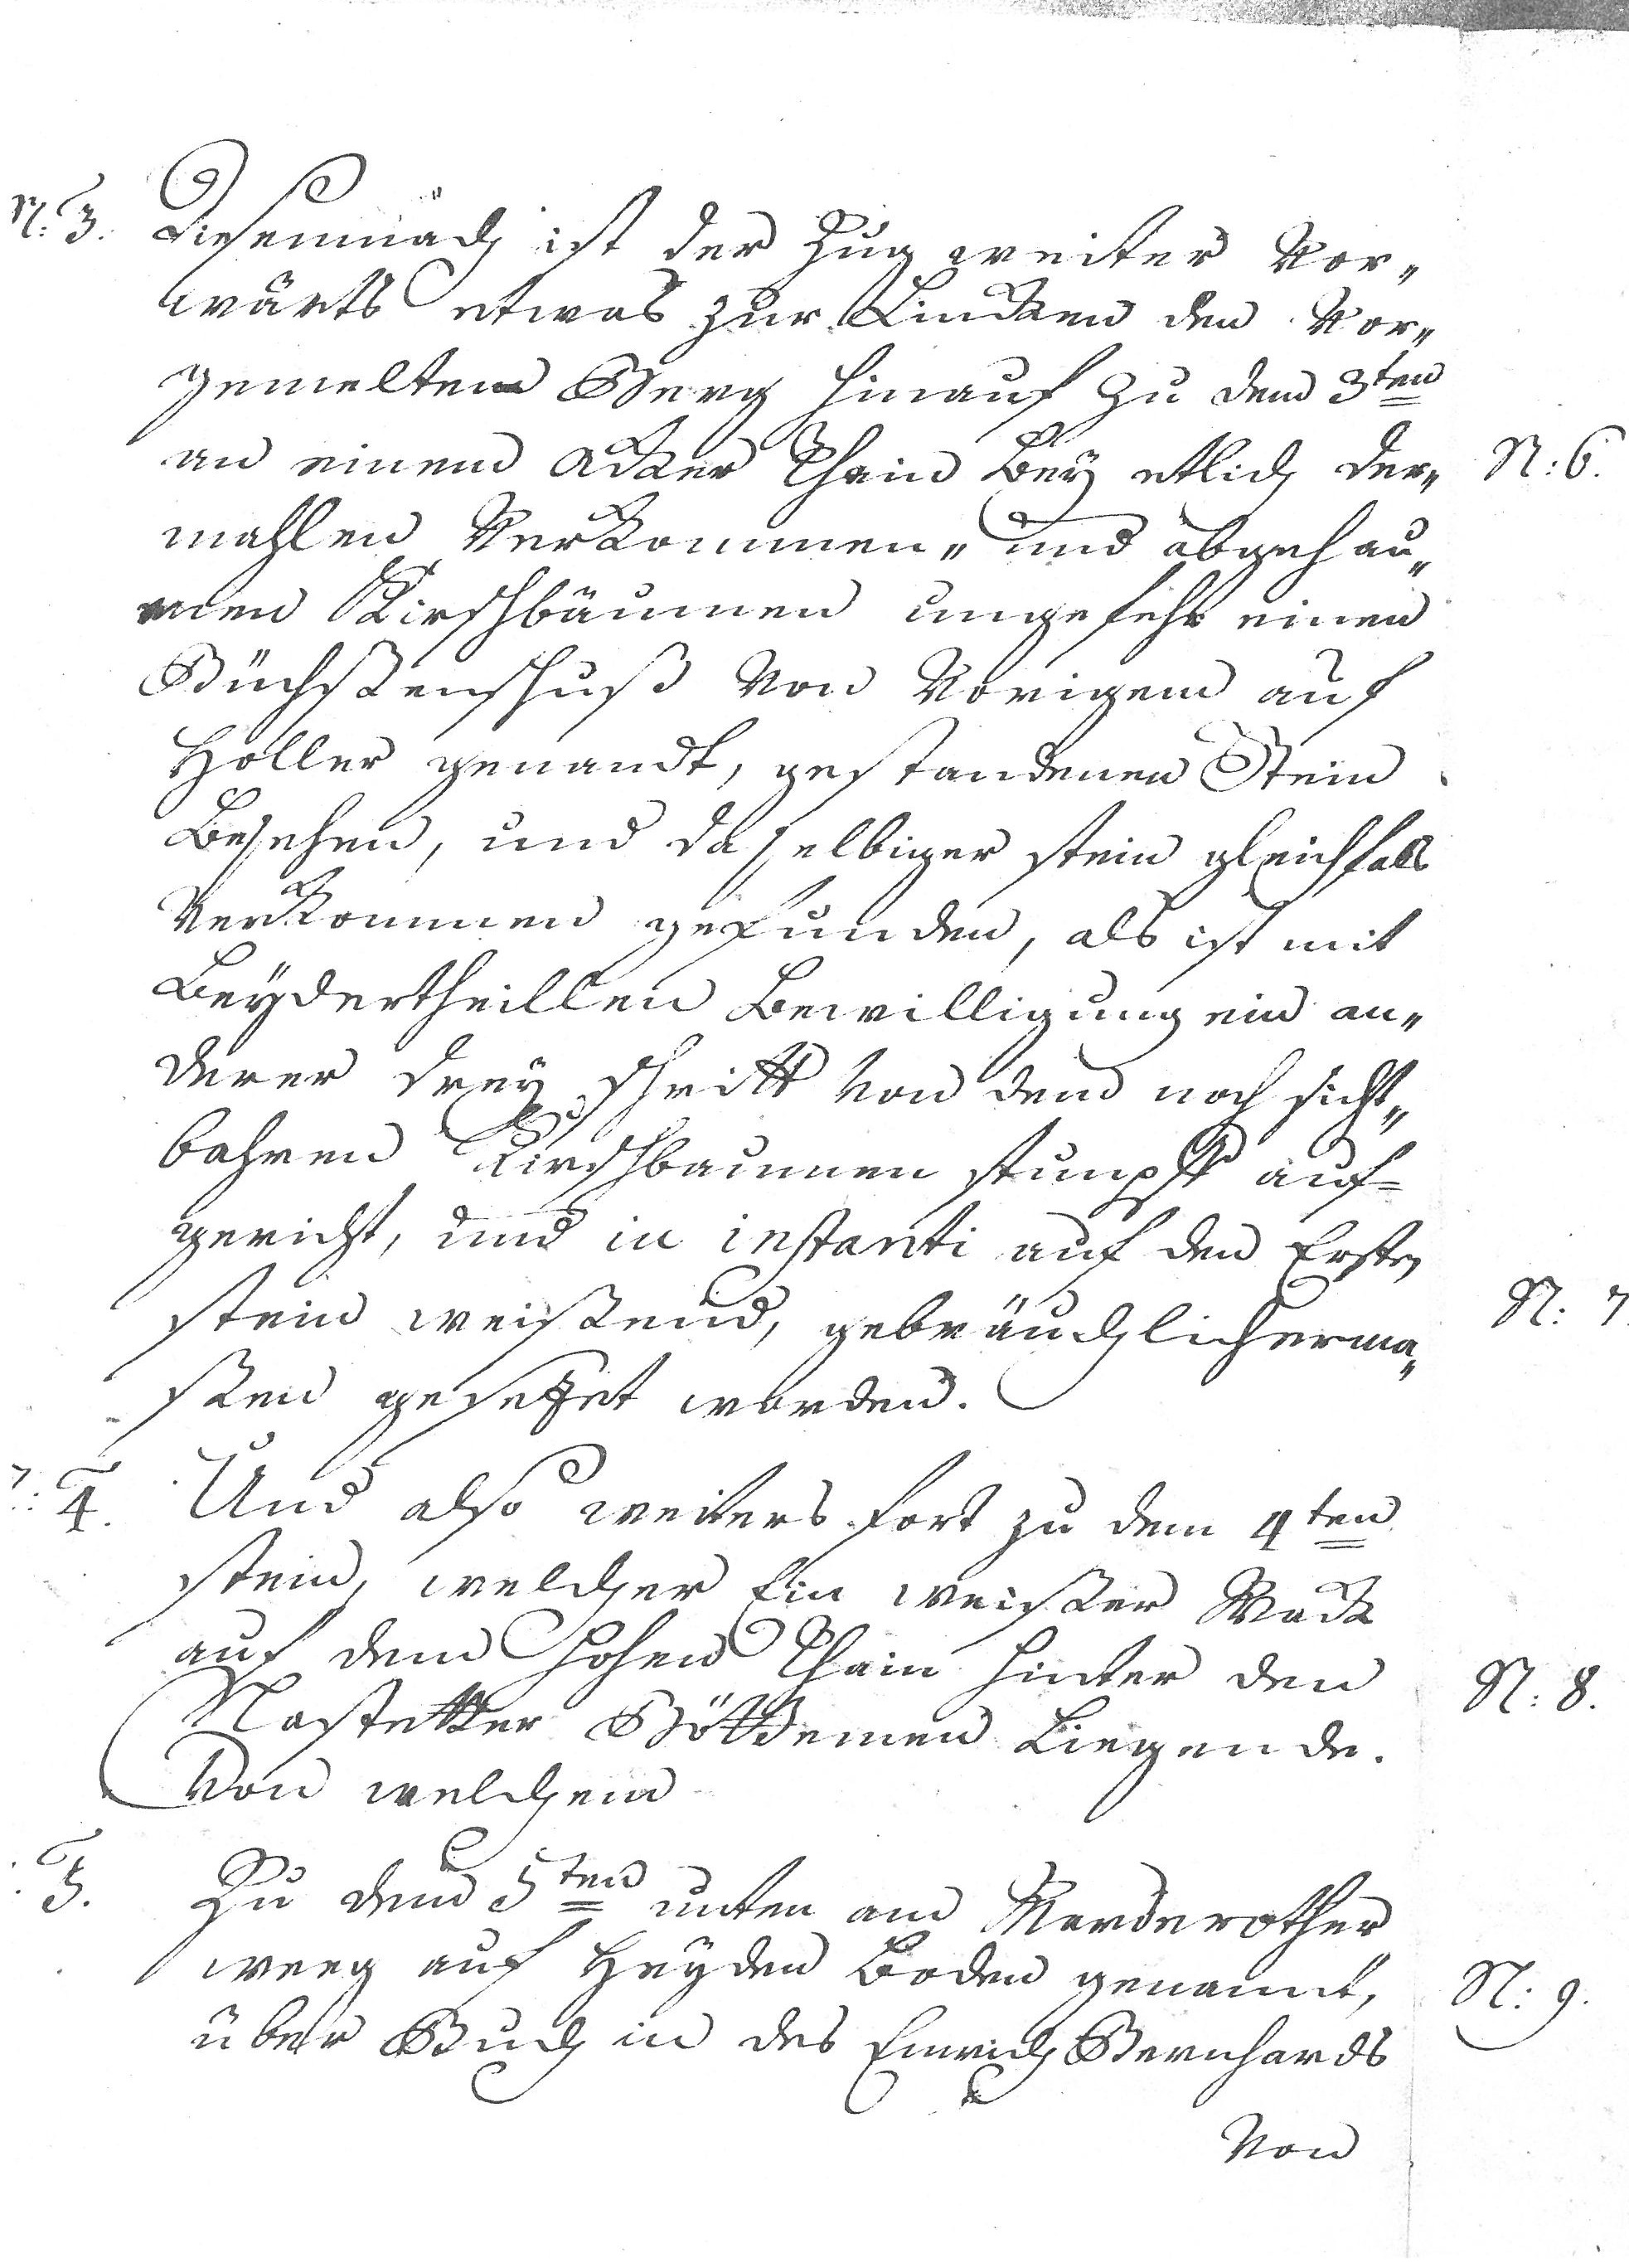 N: 3. Diesemnach ist der Zug weiter vor„
wärts etwas zur Lincken den vor„
gemelten Berg hinauf zu dem 3ten
an einem Acker Rhein bey etlich der„
mahlen verkommen„ und abgehau„
enen Kirschbäumen ungefehr einen
Büchsenschuß von vorigem auf
Holler genandt, gestandenen Stein
besehen, und daselbiger stein gleichfals
verkommen gefunden, als ist mit
beydertheillen bewilligung ein an„
derer drey schritt von dem noch sicht„
bahren Kirschbaumen stumpff auf=
gericht, und in instanti auf den Ersten
stein weisend, gebräuchlicherma„
sen gesetzet worden.
4. Und also weiters fort zu dem 4ten
stein, welcher Ein weiser Wack
auf dem hohen Rhain hinter den
Nastetter Böddemen Liegende.
Von welchem
5. Zu dem 5ten unten am Marderother
weeg auf Heyden Boden genannt,
über Buch in des Emrich Bernhards
von
N: 6.
N: 7.
N: 8.
N: 9.